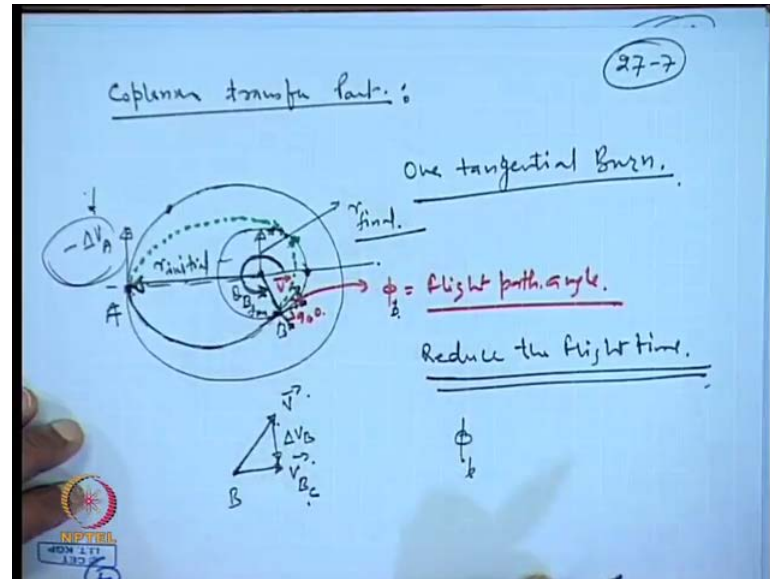 27-7
Coplanar transfer
One tangential Burn.
- ΔV_A
r_initial
r_final.
A
θ_B
B
V
90°
ϕ_B = flight path angle.
Reduce the flight time.
V
ΔV_B
V_Bc
B
ϕ_b
NPTEL
CET
I.I.T. KGP